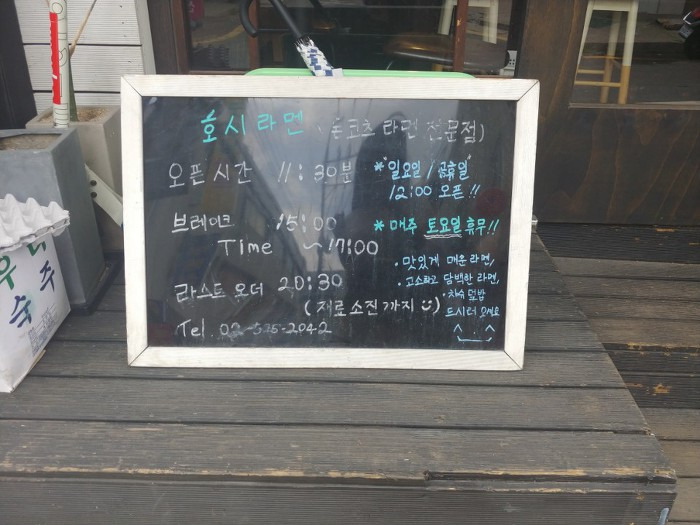 호시라멘 (돈코츠 라멘 전문점)
오픈 시간 11:30분
*일요일/공휴일
12:00 오픈!!
브레이크 15:00
Time ~17:00
*매주 토요일 휴무!!
라스트 오더 20:30
(재료소진까지)
Tel. 02-525-2042
·맛있게 매운 라면,
·고소하고 담백한 라면,
·차슈 덮밥
드시러 오세요
우리
숙주